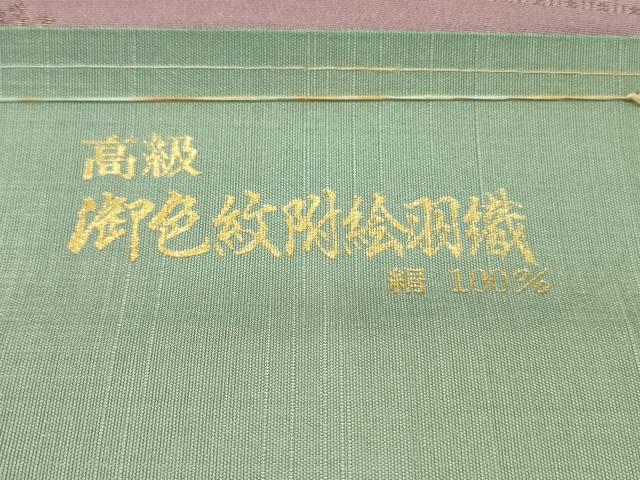 高級
御色紋附絵羽織
絹 100%